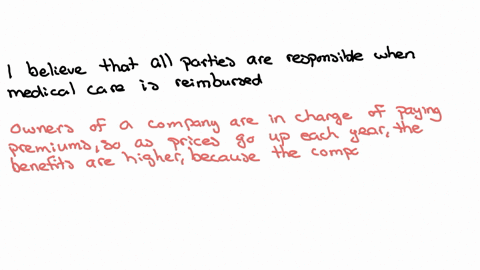 I believe that all parties are responsible when
medical care is reimbursed
Owners of a company are in charge of paying
premiums, so as prices go up each year, the
benefits are higher, because the comp